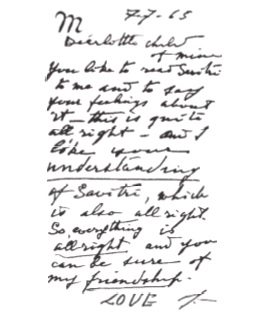 M
7-7-65
Dear little child
of mine
You like to read Savitri
to me and to say
your feelings about
it – this is quite
all right – and I
like your
understanding
of Savitri, which
is also all right.
So, everything is
all right and you
can be sure of
my friendship.
LOVE